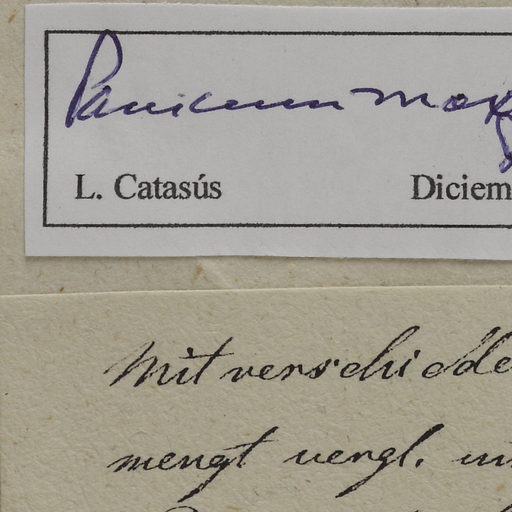 Panicum max
L. Catasús Diciem
Mit verschidde
mengt vergl. un